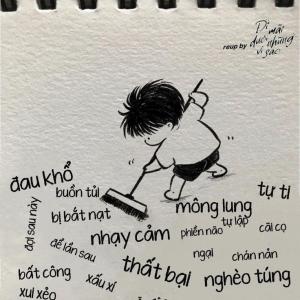 Đi mãi
reup by dưới những
vì sao
đau khổ
buồn tủi
tự ti
đợi sau này
bị bắt nạt
mông lung
tự lập
để lần sau
nhạy cảm
phiền não
cãi cọ
ngại
chán nản
bất công
xấu xí
thất bại
nghèo túng
xui xẻo